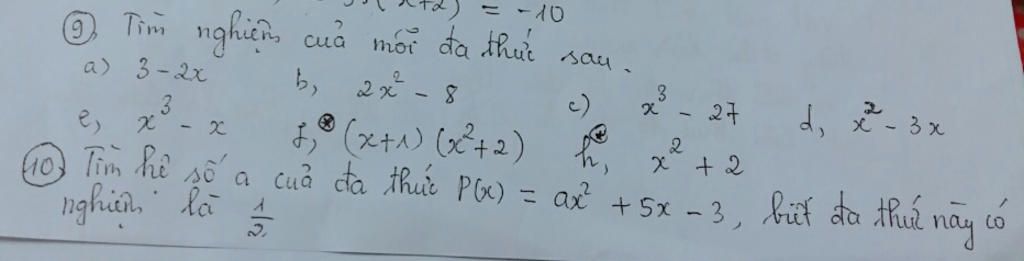 (x+2) = -10
⑨ Tìm nghiệm cuả mỗi đa thức sau.
a) 3 - 2x b, 2x² - 8 c) x³ - 27 d, x² - 3x
e, x³ - x f,⊛ (x+1) (x²+2) h,⊛ x² + 2
⑩ Tìm hệ số a cuả đa thức P(x) = ax² + 5x - 3, biết đa thức này có
nghiệm là 1/2